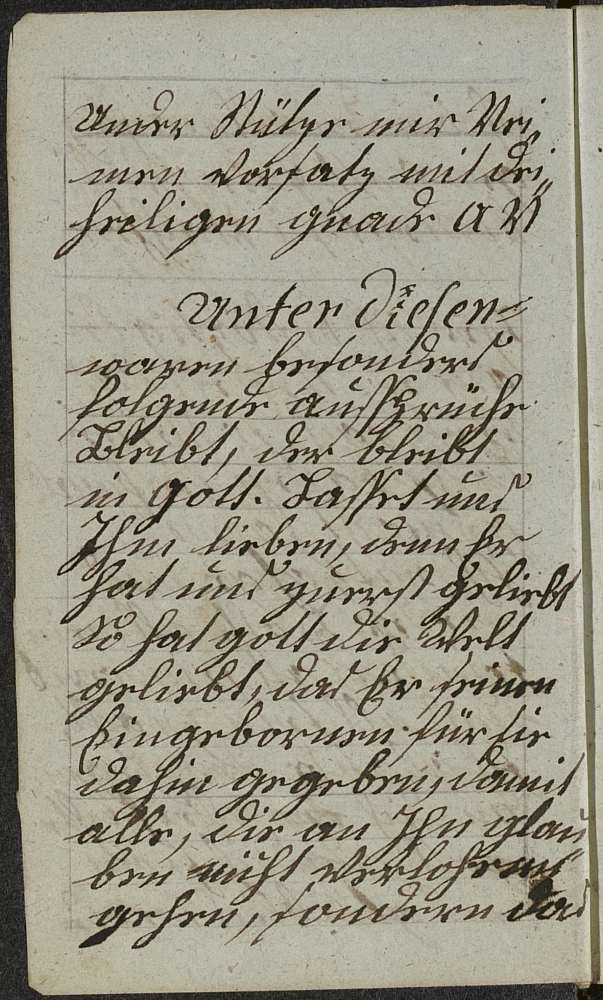 Unter Stütze mir Mei
nen Vorsatz mit dei¬
heiligen gnade A M
Unter Diesen=
waren besonders
folgende aussprüche
Bleibt, der bleibt
in Gott. Lasset uns
Ihm lieben, denn Er
hat uns zuerst geliebt
So hat gott die Welt
geliebt, das Er seinen
Eingebornen für sie
dahin gegeben, damit
alle, die an Ihn glau
ben nicht Verlohren
gehen, sondern das